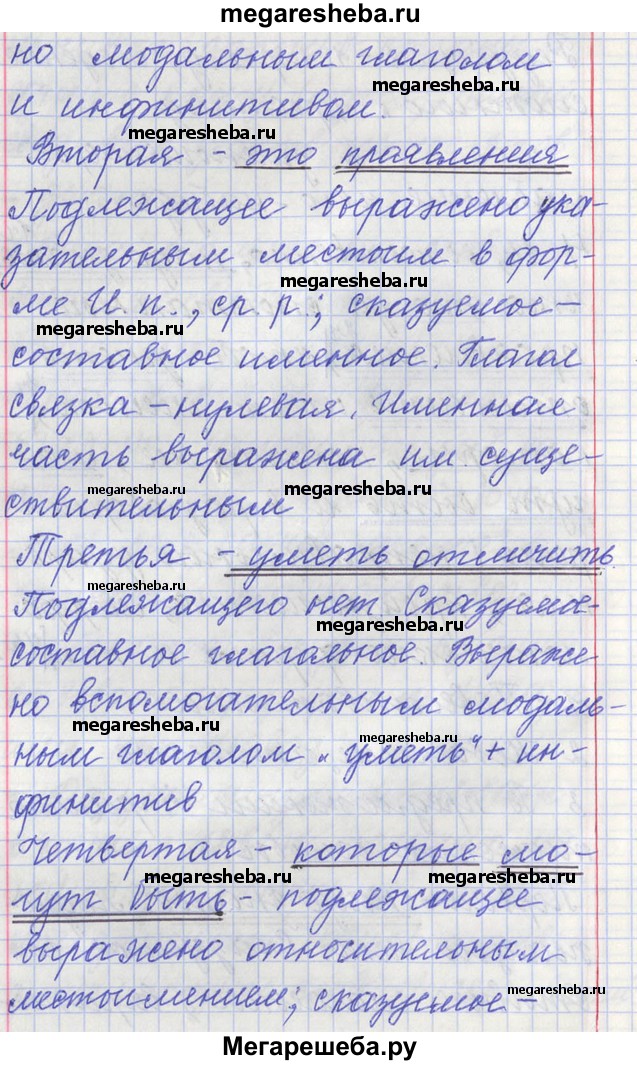 megaresheba.ru
но модальным глаголом
megaresheba.ru
и инфинитивом.
megaresheba.ru
Вторая - это проявления
Подлежащее выражено ука-
зательным местоим в фор-
megaresheba.ru
ме И. п., ср. р.; сказуемое -
megaresheba.ru
составное именное. Глагол
связка - нулевая. Именная
часть выражена им. суще-
megaresheba.ru megaresheba.ru
ствительным
Третья - уметь отличить
megaresheba.ru
Подлежащего нет Сказуемое-
megaresheba.ru
составное глагольное. Выраже
но вспомогательным модаль-
megaresheba.ru megaresheba.ru
ным глаголом „уметь“ + ин-
финитив
Четвертая - которые мо-
megaresheba.ru megaresheba.ru
гут быть - подлежащее
выражено относительным
megaresheba.ru
местоимением; сказуемое -
Мегарешеба.ру